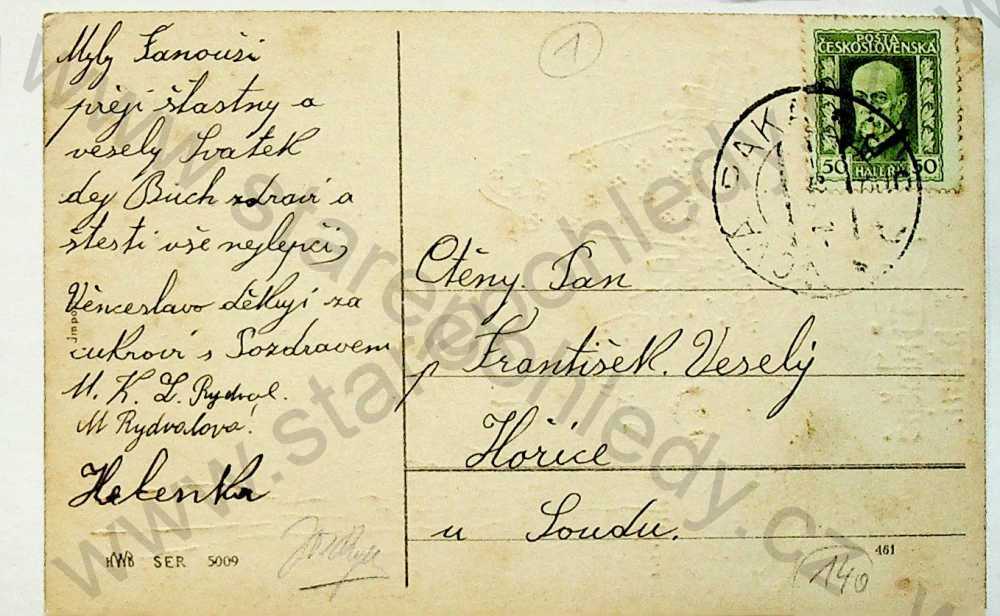 Myly Fanouši
přeji štastny a
vesely Svatek
dej Buch zdravi a
štesti vše nejlepči
Věnceslavo děkuji za
cukrovi s Pozdravem
M. K. L. Rydval.
M Rydvalová.
Helenka
HWB SER 5009
1
POŠTA
ČESKOSLOVENSKÁ
50 HALÉŘŮ 50
Ctěny. Pan
p František. Veselý
Hořice
u Soudu.
461
140
www.starepohledy.cz
www.starepohledy.cz